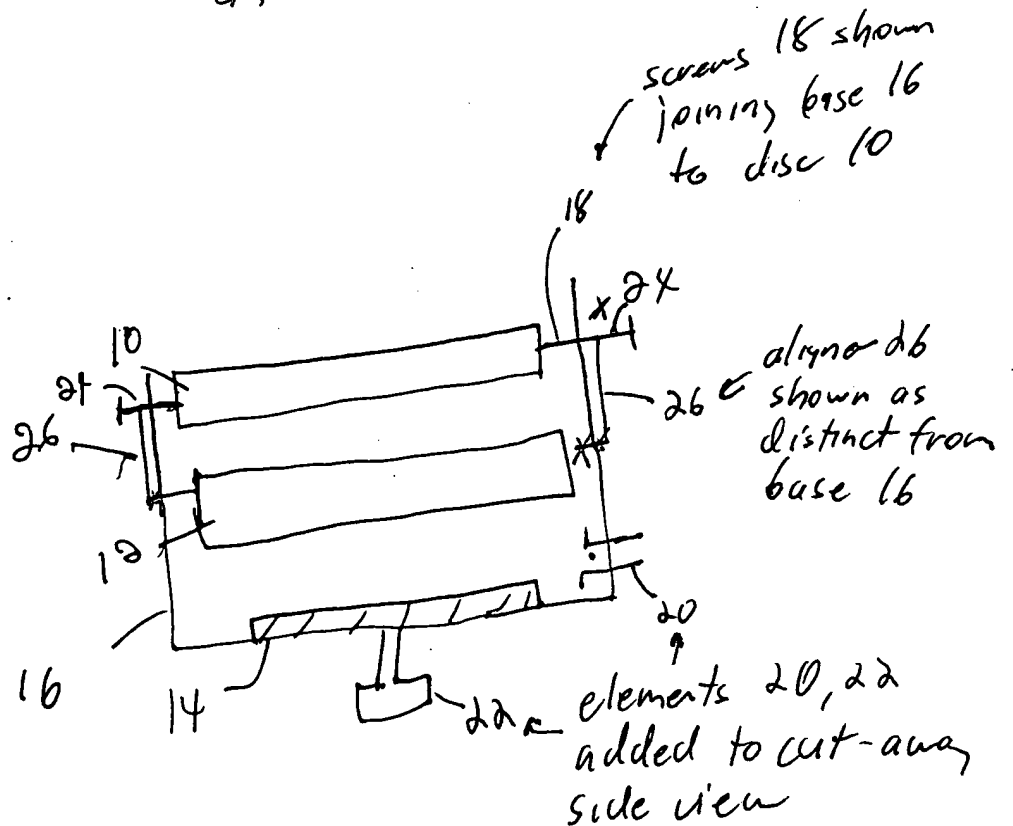 screws 18 shown
joining base 16
to disc 10
18
10
24
24
26
26
aligner 26
shown as
distinct from
base 16
12
20
16
14
22
elements 20, 22
added to cut-away
side view